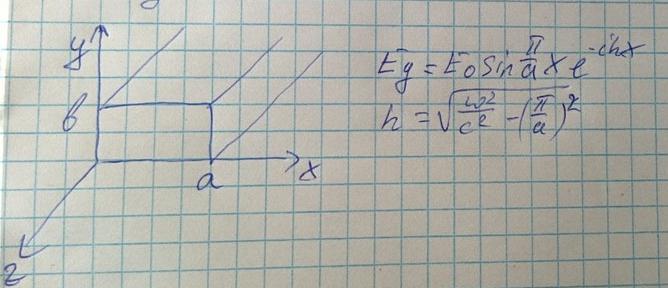 y
b
a
x
z
Ey = E₀ sin π/a x e^(-ihx)
h = √(ω²/c² - (π/a)²)